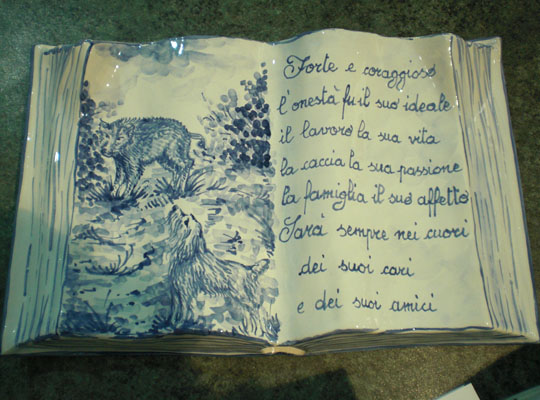 Forte e coraggioso
l'onestà fu il suo ideale
il lavoro la sua vita
la caccia la sua passione
la famiglia il suo affetto
Sarà sempre nei cuori
dei suoi cari
e dei suoi amici